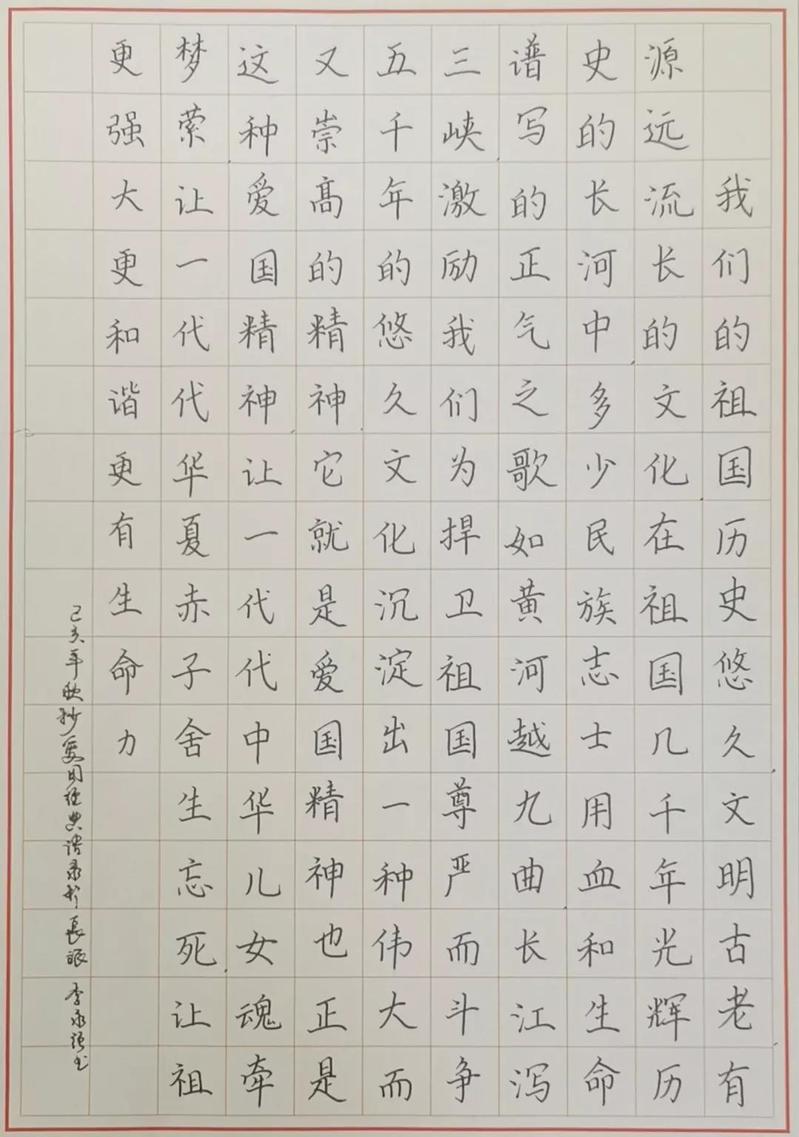 我们的祖国历史悠久文明古老有
源远流长的文化在祖国几千年光辉历
史的长河中多少民族志士用血和生命
谱写的正气之歌如黄河越九曲长江泻
三峡激励我们为捍卫祖国尊严而斗争
五千年的悠久文化沉淀出一种伟大而
又崇高的精神它就是爱国精神也正是
这种爱国精神让一代代中华儿女魂牵
梦萦让一代代华夏赤子舍生忘死让祖
更强大更和谐更有生命力
己亥年秋抄爱国经典语录于長垠李永强书